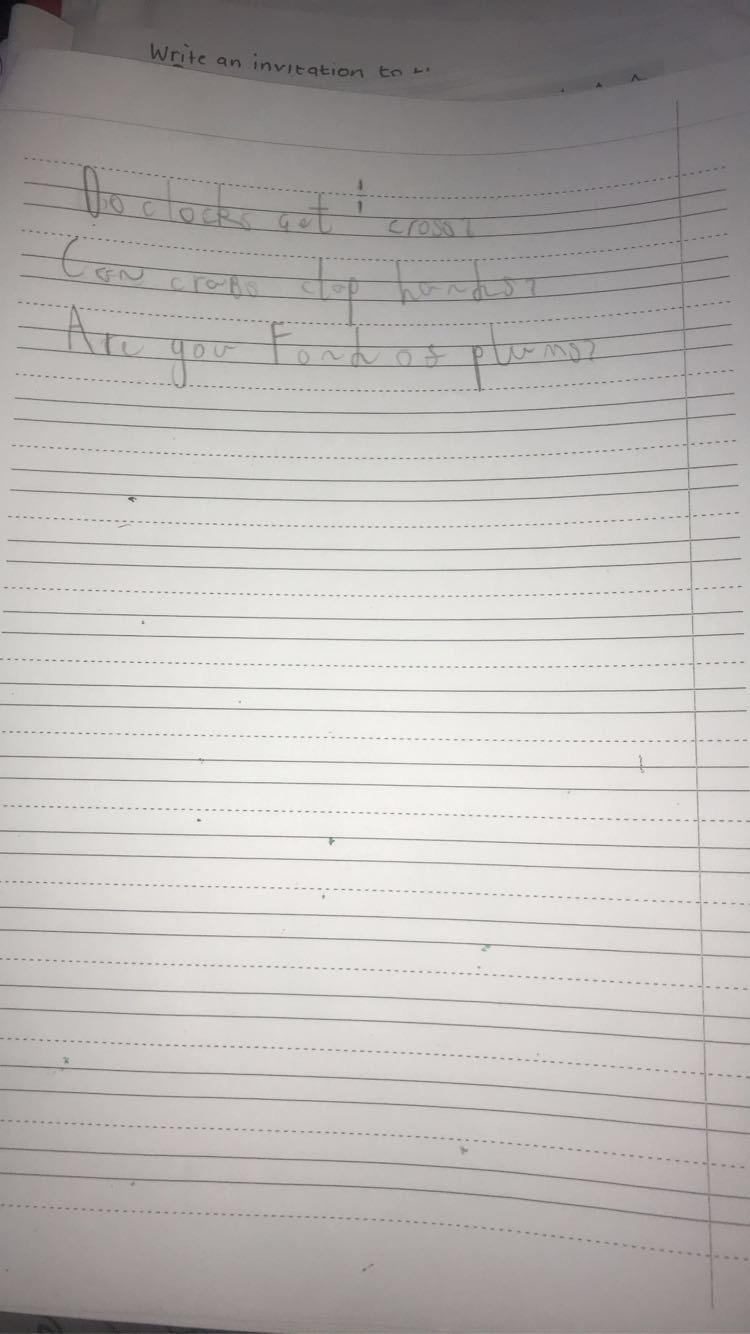 Write an invitation to
Do clocks get cross?
Can crabs clap hands?
Are you Fond of plums?